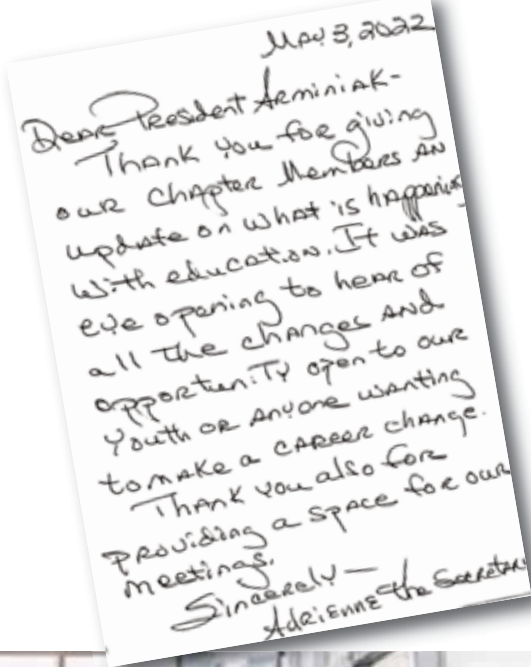 May 3, 2022
Dear President Arminiak-
Thank you for giving
our chapter members an
update on what is happening
with education. It was
eye opening to hear of
all the changes and
opportunity open to our
youth or anyone wanting
to make a career change.
Thank you also for
providing a space for our
meetings.
Sincerely —
Adrienne the Secretary